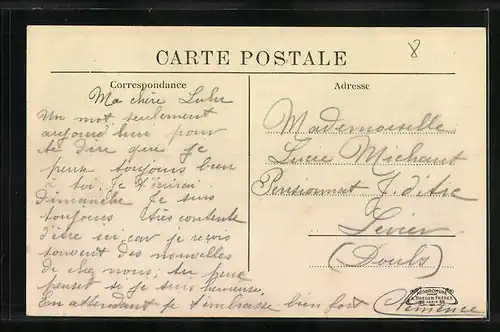 8
CARTE POSTALE
Correspondance
Ma chère Lulu
Un mot seulement
aujourd'hui pour
te dire que je
pense toujours bien
à toi. Je t'écrirai
Dimanche Je suis
toujours très contente
d'être ici, car je reçois
souvent des nouvelles
de chez nous; tu peux
penser si je suis heureuse,
En attendant je t'embrasse bien fort
Clémence
Adresse
Mademoiselle
Lucie Michaut
Pensionnat J. d'Arc
Levier
(Doubs)